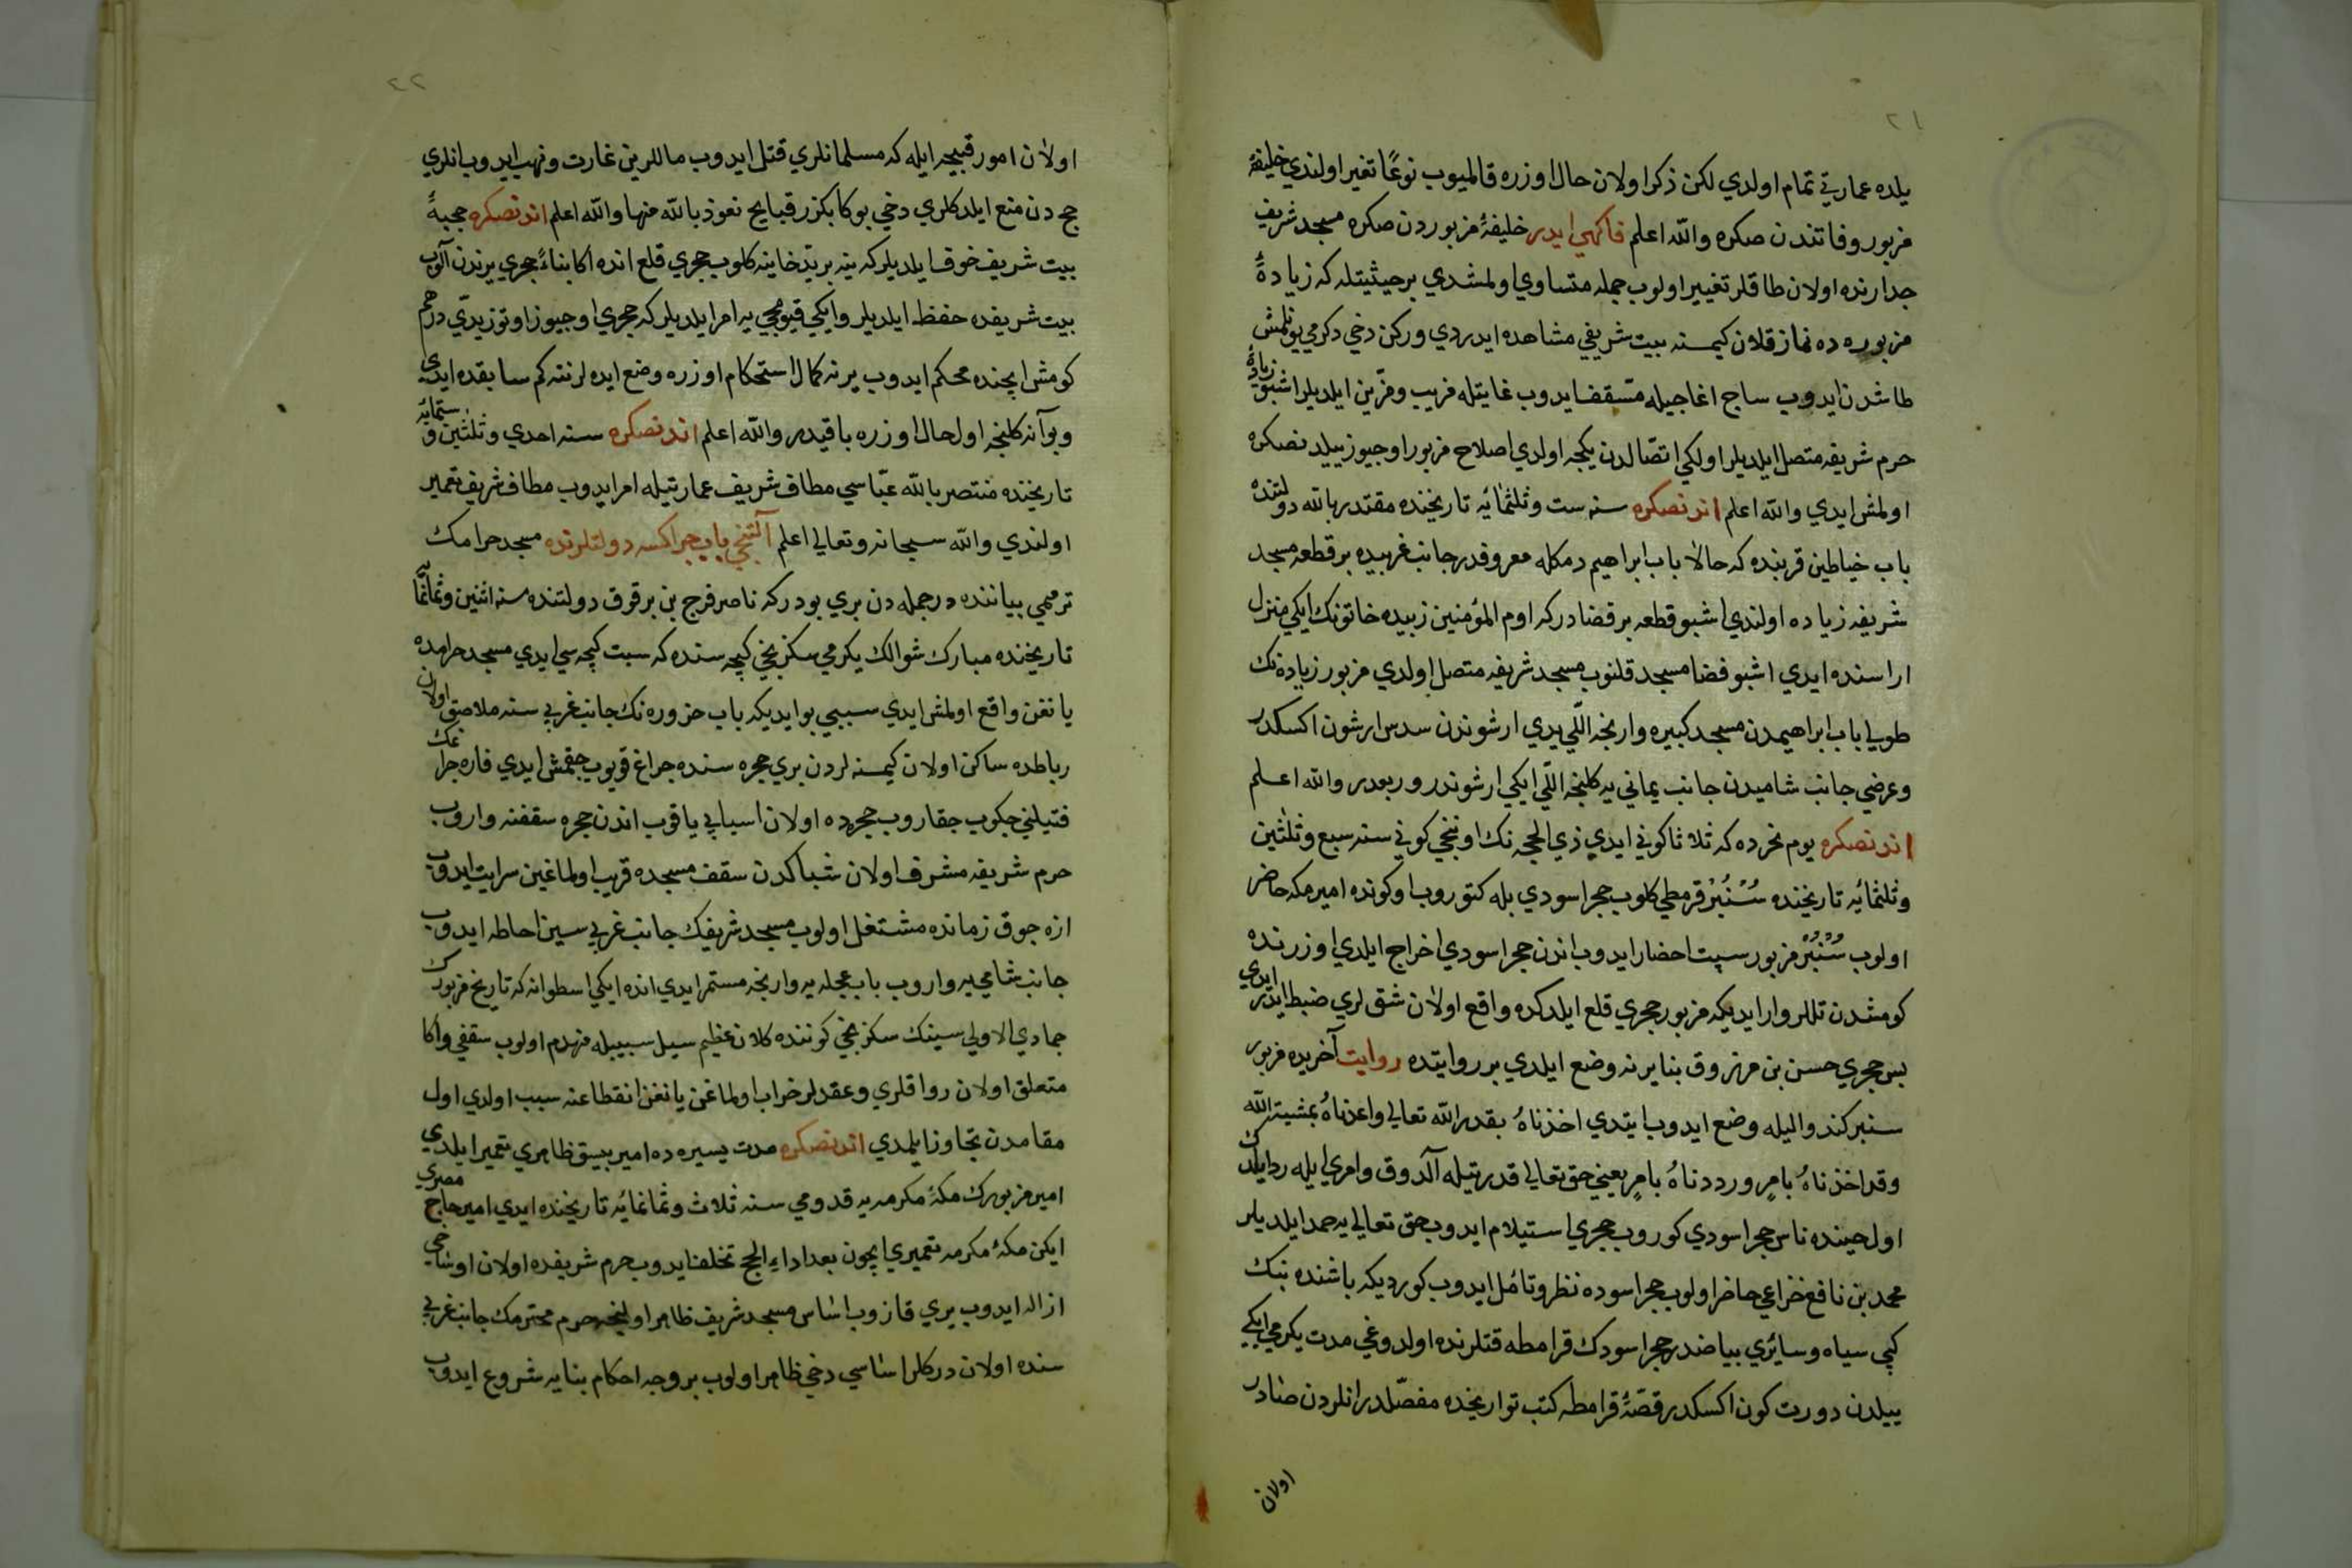 ٢١
يلده عمارتي تمام اولدي لكن ذكر اولان حال اوزره قالميوب نوعًا تغير اولندي خليفۀ
مزبور وفاتندن صكره والله اعلم فاكهي ايدر خليفۀ مزبوردن صكره مسجد شريف
جدارنده اولان طاقلر تغيير اولوب جمله متساوي اولمشدي بر حيثيتله كه زيادۀ
مزبوره ده نماز قلان كيمسنه بيت شريفي مشاهده ايدردي وركن دخي دكرمي يونلمش
طاشدن ايدوب ساج اغاجيله مسّقف ايدوب غايتله مزيب ومزّين ايلديلر اشبو زيادۀ
حرم شريفه متصل ايلديلر اولكي اتصّالدن يكجه اولدي اصلاح مزبور اوجيوز ييلدنصكره
اولمش ايدي والله اعلم اندنصكره سنه ست وثلثمائه تاريخنده مقتدر بالله دولتنده
باب خياطين قربنده كه حالا باب ابراهيم دمكله معروفدر جانب غربيده بر قطعه مسجد
شريفه زياده اولندي اشبو قطعه بر فضادر كه اوم المؤمنين زبيده خاتونك ايكي منزل
اراسنده ايدي اشبو فضا مسجد قلنوب مسجد شريفه متصل اولدي مزبور زيادەنك
طولي باب ابراهيمدن مسجد كبيره وارنجه اللّي يدي ارشوندن سدس ارشون اكسكدر
وعرضي جانب شاميدن جانب يماني يه كلنجه اللّي ايكي ارشوندر وربعدر والله اعلم
اندنصكره يوم نحرده كه ثلاثا كوني ايدي ذي الحجه نك اوننجي كوني سنه سبع وثلثين
وثلثمائه تاريخنده سُنْبُرْ قرمطي كلوب حجر اسودي بله كتوروب اوكونده امير مكه حاضر
اولوب سُنْبُرْ مزبور سپت احضار ايدوب اندن حجر اسودي اخراج ايلدي اوزرنده
كومشدن تللر وار ايديكه مزبور حجري قلع ايلدكده واقع اولان شق لري ضبط ايدر ايدي
پس حجري حسن بن مرزوق بنا يرنه وضع ايلدي بر روايتده روايت آخريده مزبور
سنبر كندو اليله وضع ايدوب ايتدي اخذناهُ بقدر الله تعالي واعدناهُ بمشيتة الله
وقد اخذناهُ بامرٍ ورددناهُ بامرٍ يعني حق تعالي قدرتيله آلدوق وامري ايله رد ايلدك
اول حينده ناس حجر اسودي كوروب حجري استيلام ايدوب حق تعالي يه حمد ايلديلر
محمد بن نافع خزاعي حاضر اولوب حجر اسوده نظر وتأمل ايدوب كورديكه باشنده بنك
كپي سياه وسائري بياضدر حجر اسودك قرامطه قتلرنده اولدوغي مدت يكرمي ايكي
ييلدن دورت كون اكسكدر قصّۀ قرامطه كتب تواريخده مفصّلدر انلردن صادر
اولان
٢٢
اولان امور قبيحه ايله كه مسلمانلري قتل ايدوب ماللرين غارت ونهب ايدوب انلري
حج دن منع ايلدكلري دخي بوكا بكزر قبايح نعوذ بالله منها والله اعلم اندنصكره حجبۀ
بيت شريف خوف ايلديلر كه ينه بر يد خاينه كلوب حجري قلع انده اكا بناءً حجري يرندن آلوب
بيت شريفده حفظ ايلديلر وايكي قيومجي يه امر ايلديلر كه حجري اوجيوز اوتوز يدّي درهم
كومش ايچنده محكم ايدوب يرنه كمال استحكام اوزره وضع ايده لر نته كم سابقده ايدي
وبو آنه كلنجه اول حال اوزره باقيدر والله اعلم اندنصكره سنه احدي وثلثين وستمايه
تاريخنده منتصر بالله عبّاسي مطاف شريف عمارتيله امر ايدوب مطاف شريف تعمير
اولندي والله سبحانه وتعالي اعلم آلتنجي باب جراكسه دولتلرنده مسجد حرامك
ترممي بياننده در جمله دن بري بودر كه ناصر فرج بن برقوق دولتنده سنه اثنين وثمانمايه
تاريخنده مبارك شوالك يكرمي سكزنجي كيجه سنده كه سبت كيجه سي ايدي مسجد حرامده
يانغن واقع اولمش ايدي سببي بو ايديكه باب حزوره نك جانب غربي سنه ملاصق اولان
رباطده ساكن اولان كيمسنه لردن بري حجره سنده جراغ قويوب جقمش ايدي فاره جراغك
فتيلني جكوب جقاروب حجرده اولان اسبابي ياقوب اندن حجره سقفنه واروب
حرم شريفه مشرف اولان شباكدن سقف مسجده قريب اولماغين سرايت ايدوب
ازه جوق زمانده مشتغل اولوب مسجد شريفك جانب غربي سين احاطه ايدوب
جانب شامي يه واروب باب عجله يه وارنجه مستمر ايدي انده ايكي اسطوانه كه تاريخ مزبورك
جمادي الاولي سينك سكزنجي كوننده كلان عظيم سيل سببيله منهدم اولوب سقفي واكا
متعلق اولان رواقلري وعقدلر خراب اولماغن يانغن انقطاعنه سبب اولدي اول
مقامدن تجاوز ايلمدي اندنصكره مدت يسيره ده امير بيسق ظاهري تعمير ايلدي
امير مزبورك مكۀ مكرمه يه قدومي سنه ثلاث وثمانمائه تاريخنده ايدي امير حاج مصري
ايكن مكۀ مكرمه تعميري ايچون بعد اداء الحج تخلف ايدوب حرم شريفده اولان اوساخي
ازاله ايدوب يري قازوب اساس مسجد شريف ظاهر اولينجه حرم محترمك جانب غربي
سنده اولان دركلر اساسي دخي ظاهر اولوب بر وجه احكام بنايه شروع ايدوب